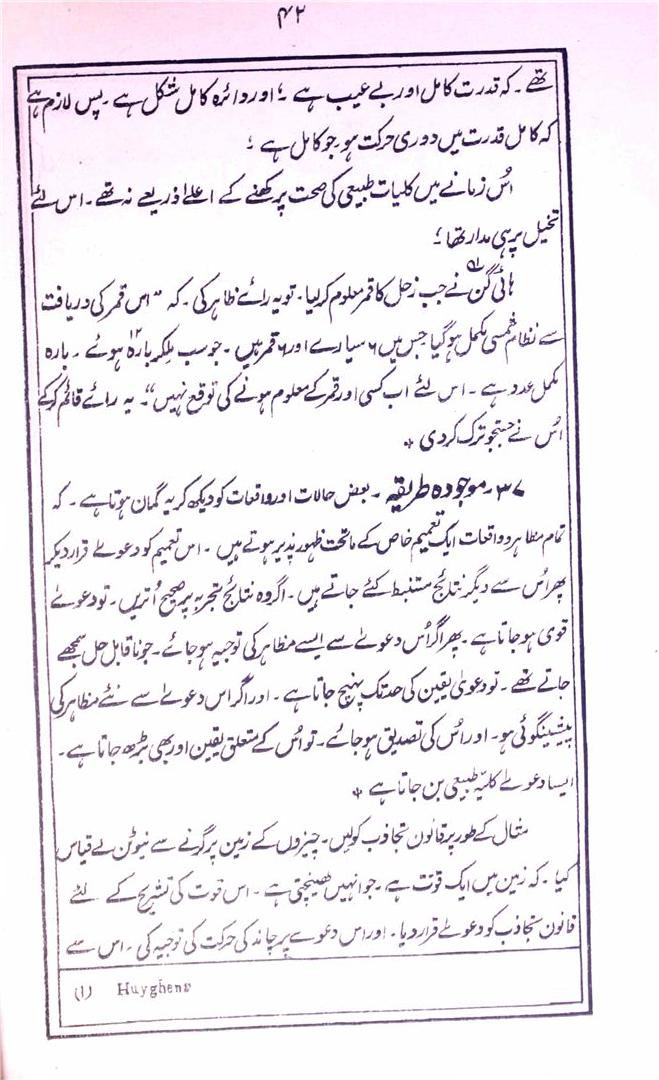 ۴۲
تھے۔ کہ قدرت کامل اور بے عیب ہے ؛ اور دائرہ کامل شکل ہے۔ پس لازم ہے
کہ کامل قدرت میں دوری حرکت ہو۔ جو کامل ہے ؛
اُس زمانے میں کلیات طبیعی کی صحت پرکھنے کے اعلےٰ ذریعے نہ تھے۔ اس لئے
تخیل پر ہی مدار تھا ؛
ہائی گن (۱) نے جب زحل کا قمر معلوم کر لیا۔ تو یہ رائے ظاہر کی۔ کہ "اس قمر کی دریافت
سے نظام شمسی مکمل ہو گیا جس میں ۶ سیارے اور ۶ قمر ہیں۔ جو سب ملکر بارہ ۱۲ ہوئے۔ بارہ
مکمل عدد ہے۔ اس لئے اب کسی اور قمر کے معلوم ہونے کی توقع نہیں"۔ یہ رائے قائم کر کے
اُس نے جستجو ترک کر دی *
۳۷۔ موجودہ طریقہ۔ بعض حالات اور واقعات کو دیکھ کر یہ گمان ہوتا ہے۔ کہ
تمام مظاہر و واقعات ایک تعمیم خاص کے ماتحت ظہور پذیر ہوتے ہیں۔ اس تعمیم کو دعوےٰ قرار دیکر
پھر اُس سے دیگر نتائج مستنبط کئے جاتے ہیں۔ اگر وہ نتائج تجربہ پر صحیح اُتریں۔ تو دعوےٰ
قوی ہو جاتا ہے۔ پھر اگر اُس دعوےٰ سے ایسے مظاہر کی توجیہ ہو جائے۔ جو ناقابل حل سمجھے
جاتے تھے۔ تو دعویٰ یقین کی حد تک پہنچ جاتا ہے۔ اور اگر اس دعوےٰ سے نئے مظاہر کی
پیشینگوئی ہو۔ اور اُس کی تصدیق ہو جائے۔ تو اُس کے متعلق یقین اور بھی بڑھ جاتا ہے۔
ایسا دعوےٰ کلیہ طبیعی بن جاتا ہے *
مثال کے طور پر قانون تجاذب کو لیں۔ چیزوں کے زمین پر گرنے سے نیوٹن نے قیاس
کیا۔ کہ زمین میں ایک قوت ہے۔ جو انہیں کھینچتی ہے۔ اس قوت کی تشریح کے لئے
قانون تجاذب کو دعوےٰ قرار دیا۔ اور اس دعوے پر چاند کی حرکت کی توجیہ کی۔ اس سے
(1) Huyghens